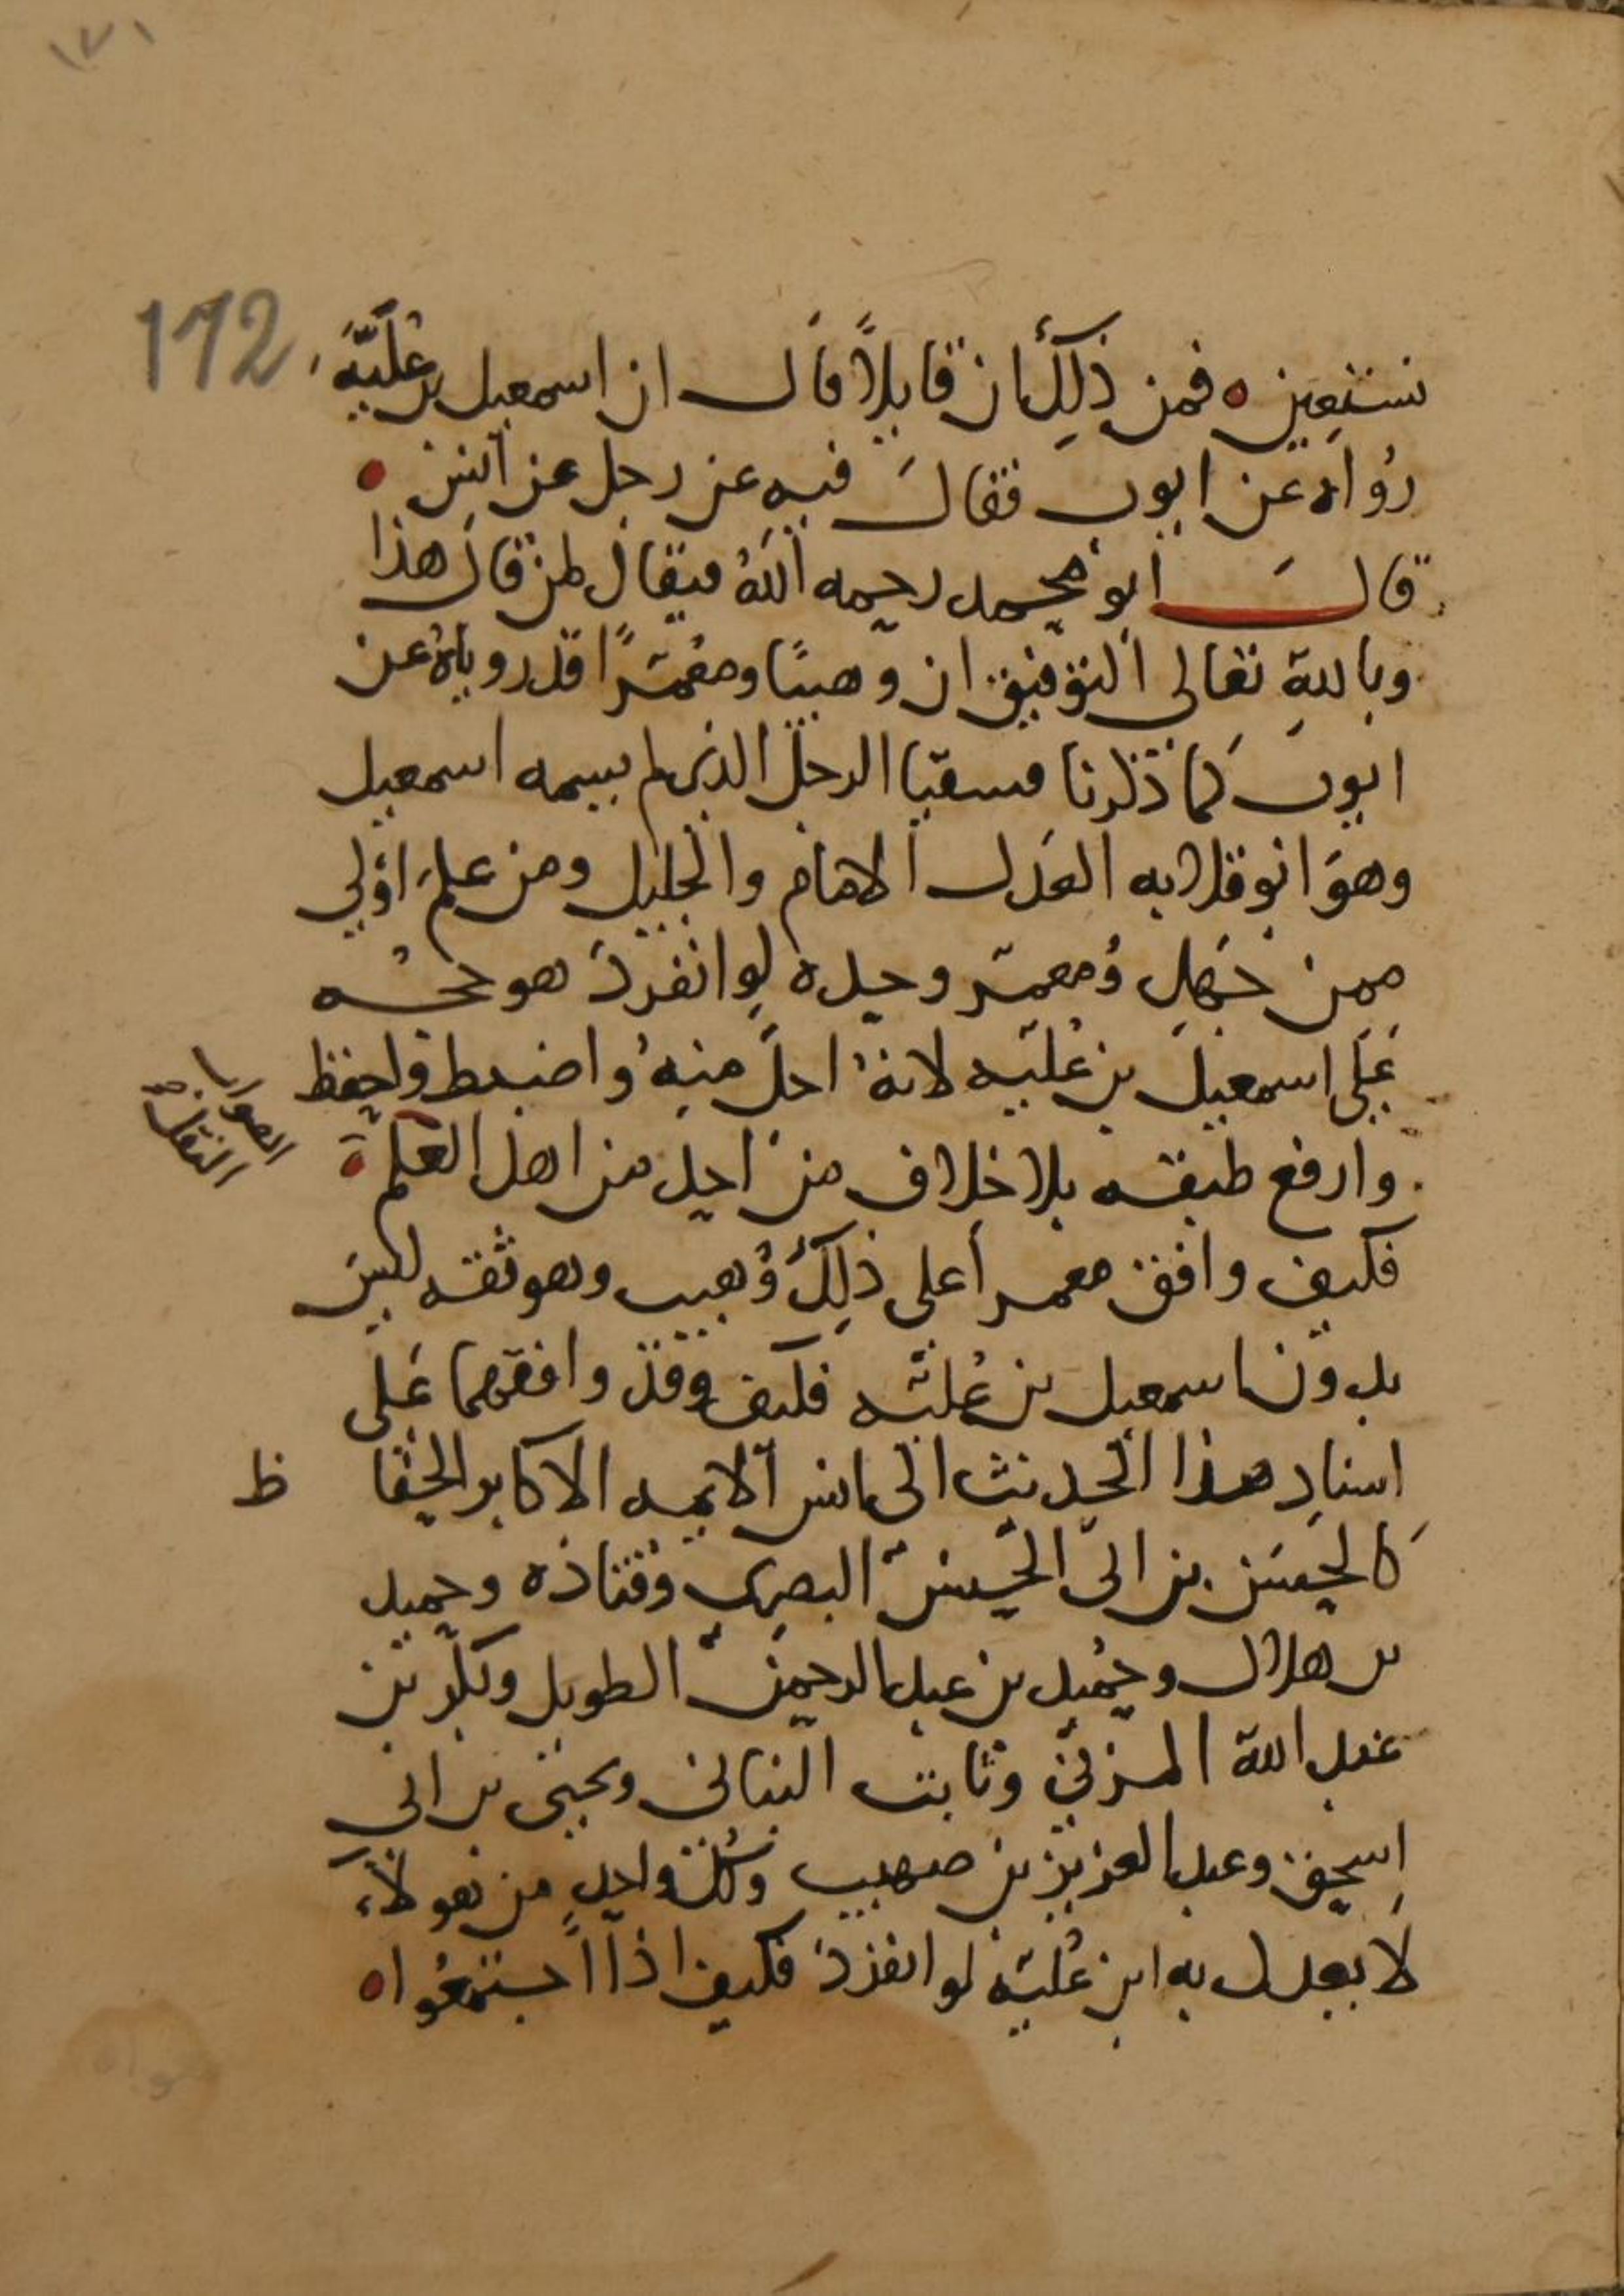 ١٧١
172
نستعين ه فمن ذلك ان قايلا قال ان اسمعيل بن علية
رواه عن ايوب فقال فيه عن رجل عن انس ه
قال ابو محمد رحمه الله فيقال لمن قال هذا
وبالله تعالى التوفيق ان وهيبا ومعمرا قد روياه عن
ايوب كما ذكرنا فسميا الرجل الذي لم يسمه اسمعيل
وهو ابو قلابه العدل الامام والجليل ومن علم اولى
ممن جهل ومعمر وحده لو انفرد هو حجه
على اسمعيل بن عليه لانه اجل منه واضبط واحفظ
وارفع طبقه بلا خلاف من احد من اهل العلم ه
الصواب
النقل
فكيف وافق معمرا على ذلك وهيب وهو ثقه ليس
بدون اسمعيل بن عليه فكيف وقد وافقهما على
اسناد هذا الحديث الى انس الايمه الاكابر الحفا ظ
كالحسن بن ابي الحسن البصري وقتاده وحميد
بن هلال وحميد بن عبد الرحمن الطويل وبكر بن
عبد الله المزني وثابت البناني ويحيى بن ابي
اسحق وعبد العزيز بن صهيب وكل واحد من هولاء
لا يعدل به ابن عليه لو انفرد فكيف اذا اجتمعوا ه